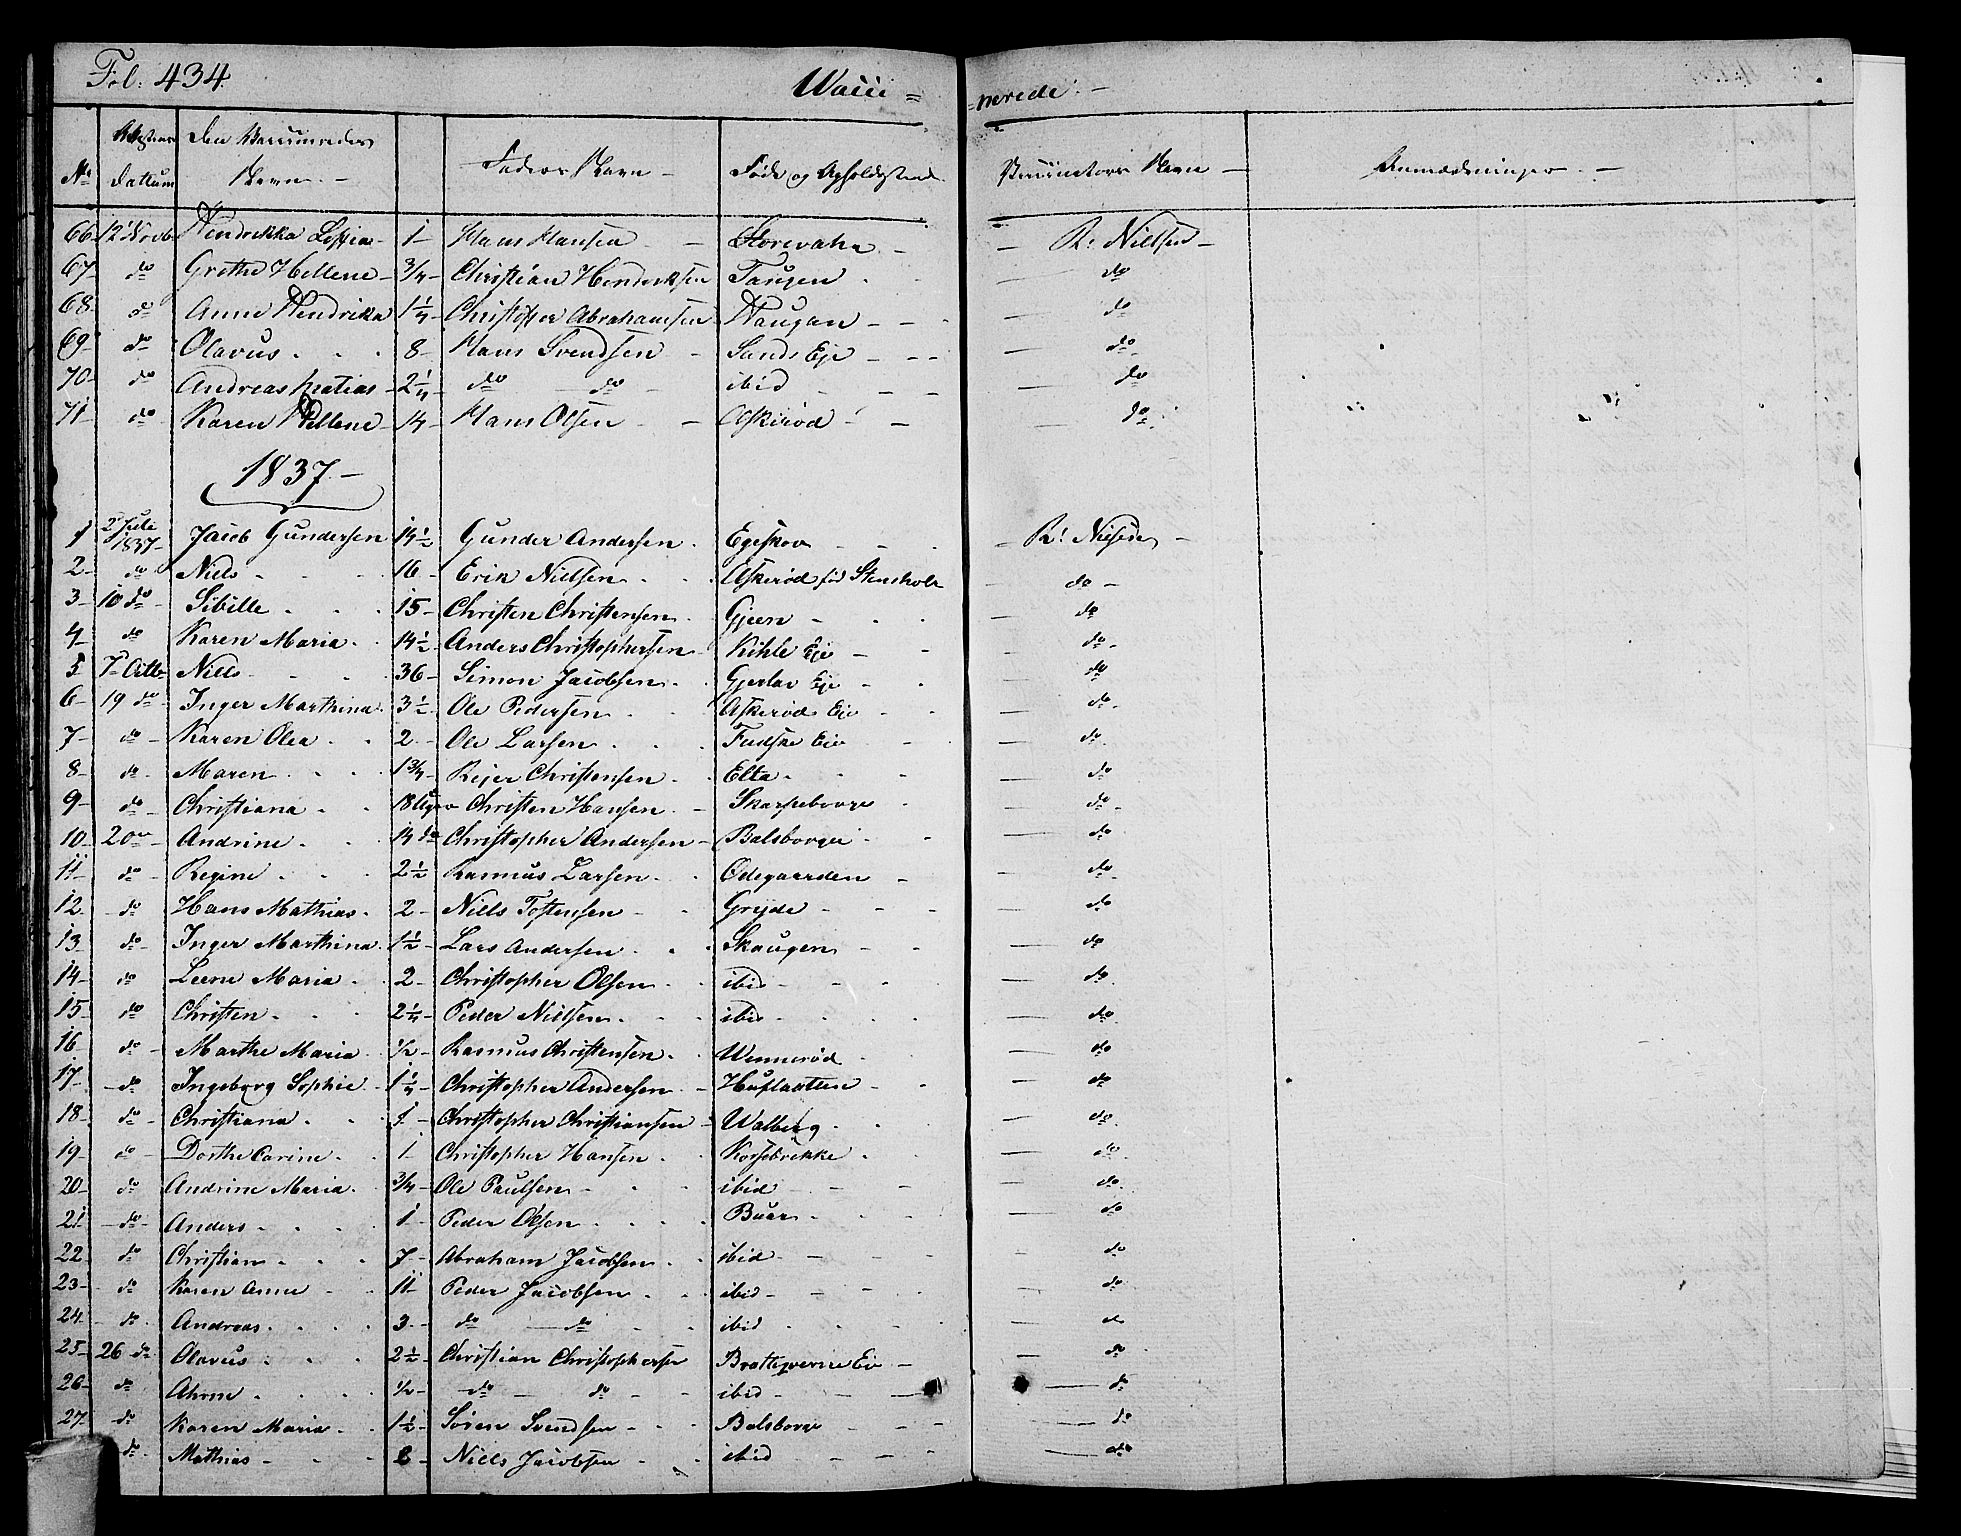 Fol. 434.
Vacci=
=nerede. -
No Attestens Dattum Den Vaccineredes Navn. - Faders Navn - Føde og Opholdssted Vaccinators Navn - Anmærkninger. -
66 12 Novb Hendrikka 1 Hans Hansen - R: Nielsen -
67 do Grethe Hellene 3/4 Christian Hendriksen Taugen do
68 do Anne Hendrika 1 1/4 Christopher Abrahamsen Haugan do
69 do Olavus 8 Hans Svendsen Sands Eje do
70 do Andreas Matias 2 1/4 do do ibid do
71 do Karen Hellene 14 Hans Olsen Askerød do
1837 -
1 2 Juli 1837 Jacob Gundersen 14 1/2 Gunder Andersen Egeskov R:
2 do Niels 16 Erik Nielsen Askerød fød Stensholt do
3 10 do Sibille 15 Christen Christensen Gjeen do
4 do Karen Maria 14 1/2 Anders Christophersen Kihle Eje do
5 7 Octb Niels 36 Simon Jacobsen Gjerlav Eje do
6 19 do Inger Marthina 3 1/2 Ole Pedersen Askerød Eje do
7 do Karen Olea 2 Ole Larsen Fudske Eje do
8 do Maren 1 3/4 Rejer Christensen Elta do
9 do Christiana 18 Uger Christen Hansen Skarpeborge do
10 20 Andrine 14 do Christopher Andersen Balsborge do
11 do Regine 2 1/2 Rasmus Larsen Ødegaarden do
12 do Hans Mathias 2 Niels Tostensen Gryde do
13 do Inger Marthina 1 1/2 Lars Andersen Skaugen do
14 do Leene Maria 2 Christopher Olsen ibid do
15 do Christen 2 1/4 Peder Nielsen ibid do
16 do Marthe Maria 1/2 Rasmus Christensen Wennerød do
17 do Ingeborg Sophie 1 1/4 Christopher Andersen Huslaatten do
18 do Christiana 1 Christopher Christiansen Walberg do
19 do Dorthe Carine 1 Christopher Hansen Korsebrekke do
20 do Andrine Maria 3/4 Ole Paulsen ibid do
21 do Anders 1 Peder Olsen Buer do
22 do Christian 7 Abraham Jacobsen ibid do
23 do Karen Anne 11 Peder Jacobsen ibid do
24 do Andreas 3 do do ibid do
25 26 do Olavus 2 1/2 Christian Christophersen do
26 do 1/2 do do ibid do
27 do Karen Maria 1 1/2 Søren Svendsen Balsborge do
do Mathias 8 Niels Jacobsen ibid do